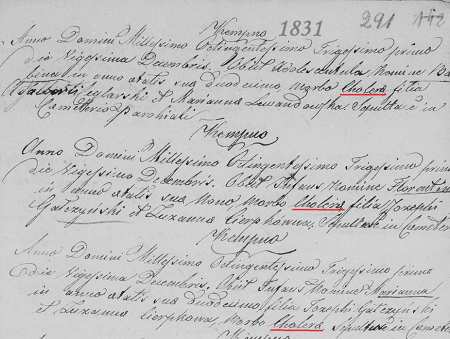 Kempno 1831 291 142
Anno Domini Millessimo Octingentessimo Trigessimo primo
die Vigessima Decembris. Obiit Adolescentula Nomine Ba
in anno ætatis suæ duodecimo Morbo Cholera filia
Adalberti et Marianna Lewandowska. Sepulta e in
Cæmeterio parchiali
Kempno
Anno Domini Millessimo Octingentessimo Trigessimo primo
die Vigessima Decembris. Obiit Infans Nomine Florentin
in anno ætatis suæ Nono Morbo Cholera filia Josephi
Galczynski et Zuzanna Cierphowa, Sepultæ in Cæmeter
Kempno
Anno Domini Millessimo Octingentessimo Trigessimo primo
die Vigessima Decembris, Obiit Infans Nomine Marianna
in anno ætatis suæ duodecimo filia Josephi Galczynski
et Zuzanna Cierphowa, Morbo Cholera Sepultæ in Cæmete
Kempno